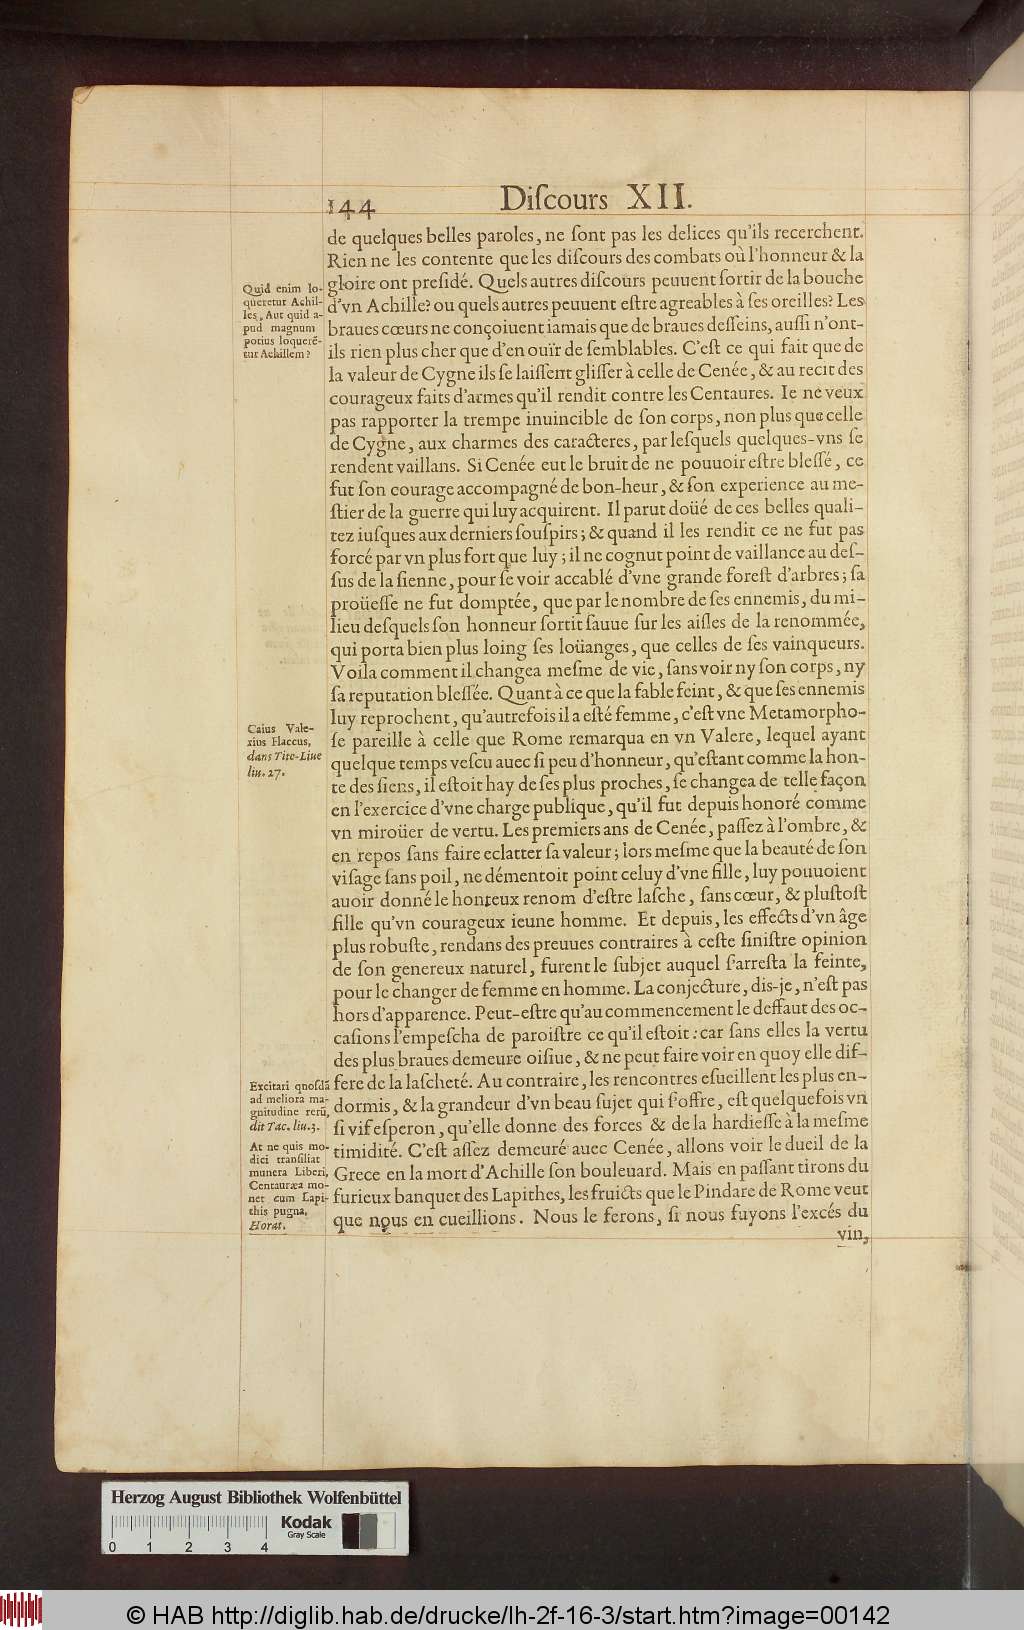 144
Diſcours XII.
de quelques belles paroles, ne ſont pas les delices qu'ils recerchent.
Rien ne les contente que les diſcours des combats où l'honneur & la
gloire ont preſidé. Quels autres diſcours peuuent ſortir de la bouche
d'vn Achille? ou quels autres peuuent eſtre agreables à ſes oreilles? Les
braues cœurs ne conçoiuent iamais que de braues deſſeins, auſſi n'ont-
ils rien plus cher que d'en ouïr de ſemblables. C'eſt ce qui fait que de
la valeur de Cygne ils ſe laiſſent gliſſer à celle de Cenée, & au recit des
courageux faits d'armes qu'il rendit contre les Centaures. Ie ne veux
pas rapporter la trempe inuincible de ſon corps, non plus que celle
de Cygne, aux charmes des caracteres, par leſquels quelques-vns ſe
rendent vaillans. Si Cenée eut le bruit de ne pouuoir eſtre bleſſé, ce
fut ſon courage accompagné de bon-heur, & ſon experience au me-
ſtier de la guerre qui luy acquirent. Il parut doüé de ces belles quali-
tez iuſques aux derniers ſouſpirs; & quand il les rendit ce ne fut pas
forcé par vn plus fort que luy; il ne cognut point de vaillance au deſ-
ſus de la ſienne, pour ſe voir accablé d'vne grande foreſt d'arbres; ſa
proüeſſe ne fut domptée, que par le nombre de ſes ennemis, du mi-
lieu deſquels ſon honneur ſortit ſauue ſur les aiſles de la renommée,
qui porta bien plus loing ſes loüanges, que celles de ſes vainqueurs.
Voila comment il changea meſme de vie, ſans voir ny ſon corps, ny
ſa reputation bleſſée. Quant à ce que la fable feint, & que ſes ennemis
luy reprochent, qu'autrefois il a eſté femme, c'eſt vne Metamorpho-
ſe pareille à celle que Rome remarqua en vn Valere, lequel ayant
quelque temps veſcu auec ſi peu d'honneur, qu'eſtant comme la hon-
te des ſiens, il eſtoit hay de ſes plus proches, ſe changea de telle façon
en l'exercice d'vne charge publique, qu'il fut depuis honoré comme
vn miroüer de vertu. Les premiers ans de Cenée, paſſez à l'ombre, &
en repos ſans faire eclatter ſa valeur; lors meſme que la beauté de ſon
viſage ſans poil, ne démentoit point celuy d'vne fille, luy pouuoient
auoir donné le honteux renom d'eſtre laſche, ſans cœur, & pluſtoſt
fille qu'vn courageux ieune homme. Et depuis, les effects d'vn âge
plus robuſte, rendans des preuues contraires à ceſte ſiniſtre opinion
de ſon genereux naturel, furent le ſubjet auquel ſ'arreſta la feinte,
pour le changer de femme en homme. La conjecture, dis-je, n'eſt pas
hors d'apparence. Peut-eſtre qu'au commencement le deffaut des oc-
caſions l'empeſcha de paroiſtre ce qu'il eſtoit: car ſans elles la vertu
des plus braues demeure oiſiue, & ne peut faire voir en quoy elle dif-
fere de la laſcheté. Au contraire, les rencontres eſueillent les plus en-
dormis, & la grandeur d'vn beau ſujet qui ſ'offre, eſt quelquefois vn
ſi vif eſperon, qu'elle donne des forces & de la hardieſſe à la meſme
timidité. C'eſt aſſez demeuré auec Cenée, allons voir le dueil de la
Grece en la mort d'Achille ſon bouleuard. Mais en paſſant tirons du
furieux banquet des Lapithes, les fruicts que le Pindare de Rome veut
que nous en cueillions. Nous le ferons, ſi nous fuyons l'excés du
vin,
Quid enim lo-
queretur Achil-
les, Aut quid a-
pud magnum
potius loquerē-
tur Achillem?
Caius Vale-
rius Flaccus,
dans Tite-Liue
liu. 27.
Excitari quoſdā
ad meliora ma-
gnitudine rerū,
dit Tac. liu. 3.
At ne quis mo-
dici tranſiliat
munera Liberi,
Centauræa mo-
net cum Lapi-
this pugna,
Horat.
Herzog August Bibliothek Wolfenbüttel
Kodak
Gray Scale
0 1 2 3 4
© HAB http://diglib.hab.de/drucke/lh-2f-16-3/start.htm?image=00142